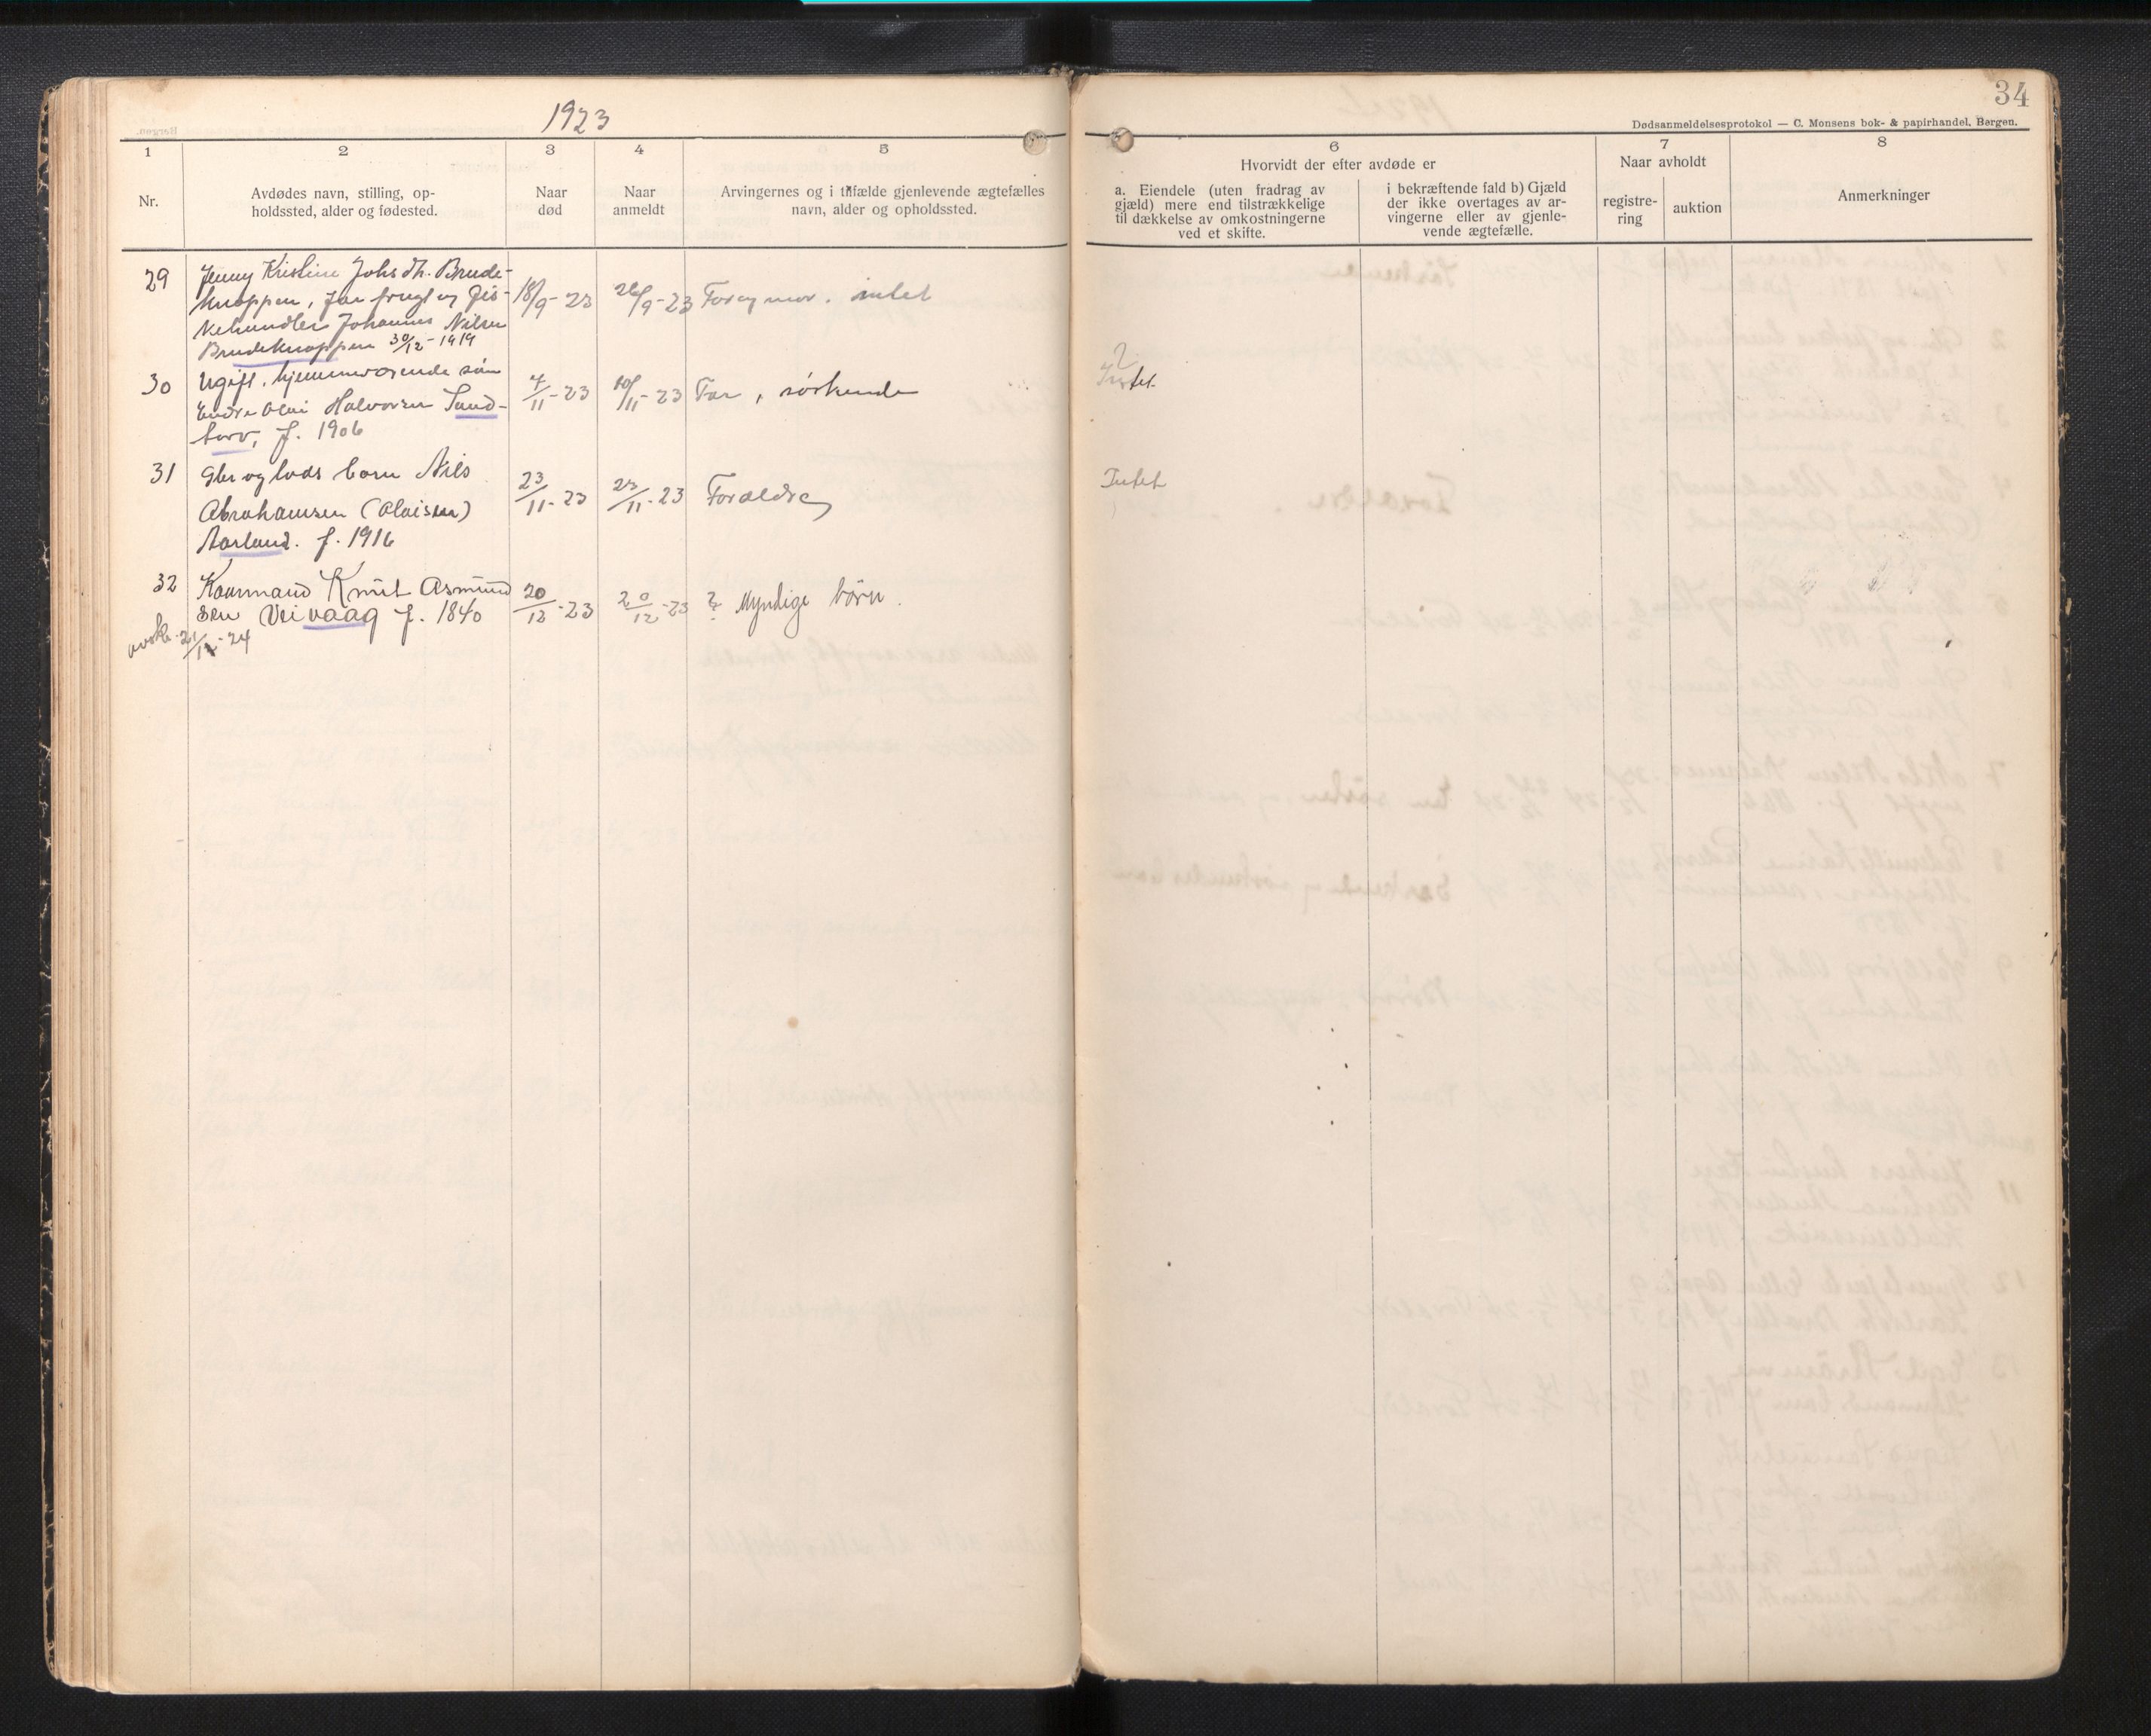 1923
34
Dødsanmeldelsesprotokol — C. Monsens bok- & papirhandel, Bergen.
1
2
3
4
5
6
7
8
Nr.
Avdødes navn, stilling, op-
holdssted, alder og fødested.
Naar
død
Naar
anmeldt
Arvingernes og i tilfælde gjenlevende ægtefælles
navn, alder og opholdssted.
Hvorvidt der efter avdøde er
a. Eiendele (uten fradrag av
gjæld) mere end tilstrækkelige
til dækkelse av omkostningerne
ved et skifte.
i bekræftende fald b) Gjæld
der ikke overtages av ar-
vingerne eller av gjenle-
vende ægtefælle.
Naar avholdt
registre-
ring
auktion
Anmerkninger
29
Jenny Kristine Johsdh. Brude-
knappen, far frugt og fis-
kehandler Johannes Nilsen
Brudeknappen 30/12-1919
18/9-23
26/9-23
Far og mor. intet
30
Ugift. hjemmeværende søn
Endre Olai Halvorsen Sand-
torv, f. 1906
4/11-23
10/11-23
Far, søskende
?
Intet
31
Gbr og lods barn Nils
Abrahamsen (Olaisen)
Aarland. f. 1916
23/11-23
23/11-23
Forældre
Intet
32
Kaarmand Knut Asmund
sen Veivaag f. 1840
20/12-23
20/12-23
? Myndige børn.
avsk. 21/12-24